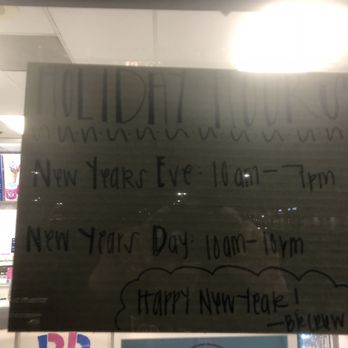 HOLIDAY HOURS
New Years Eve: 10am-7pm
New Years Day: 10am-10pm
Happy New Year!
-BR CREW
BR